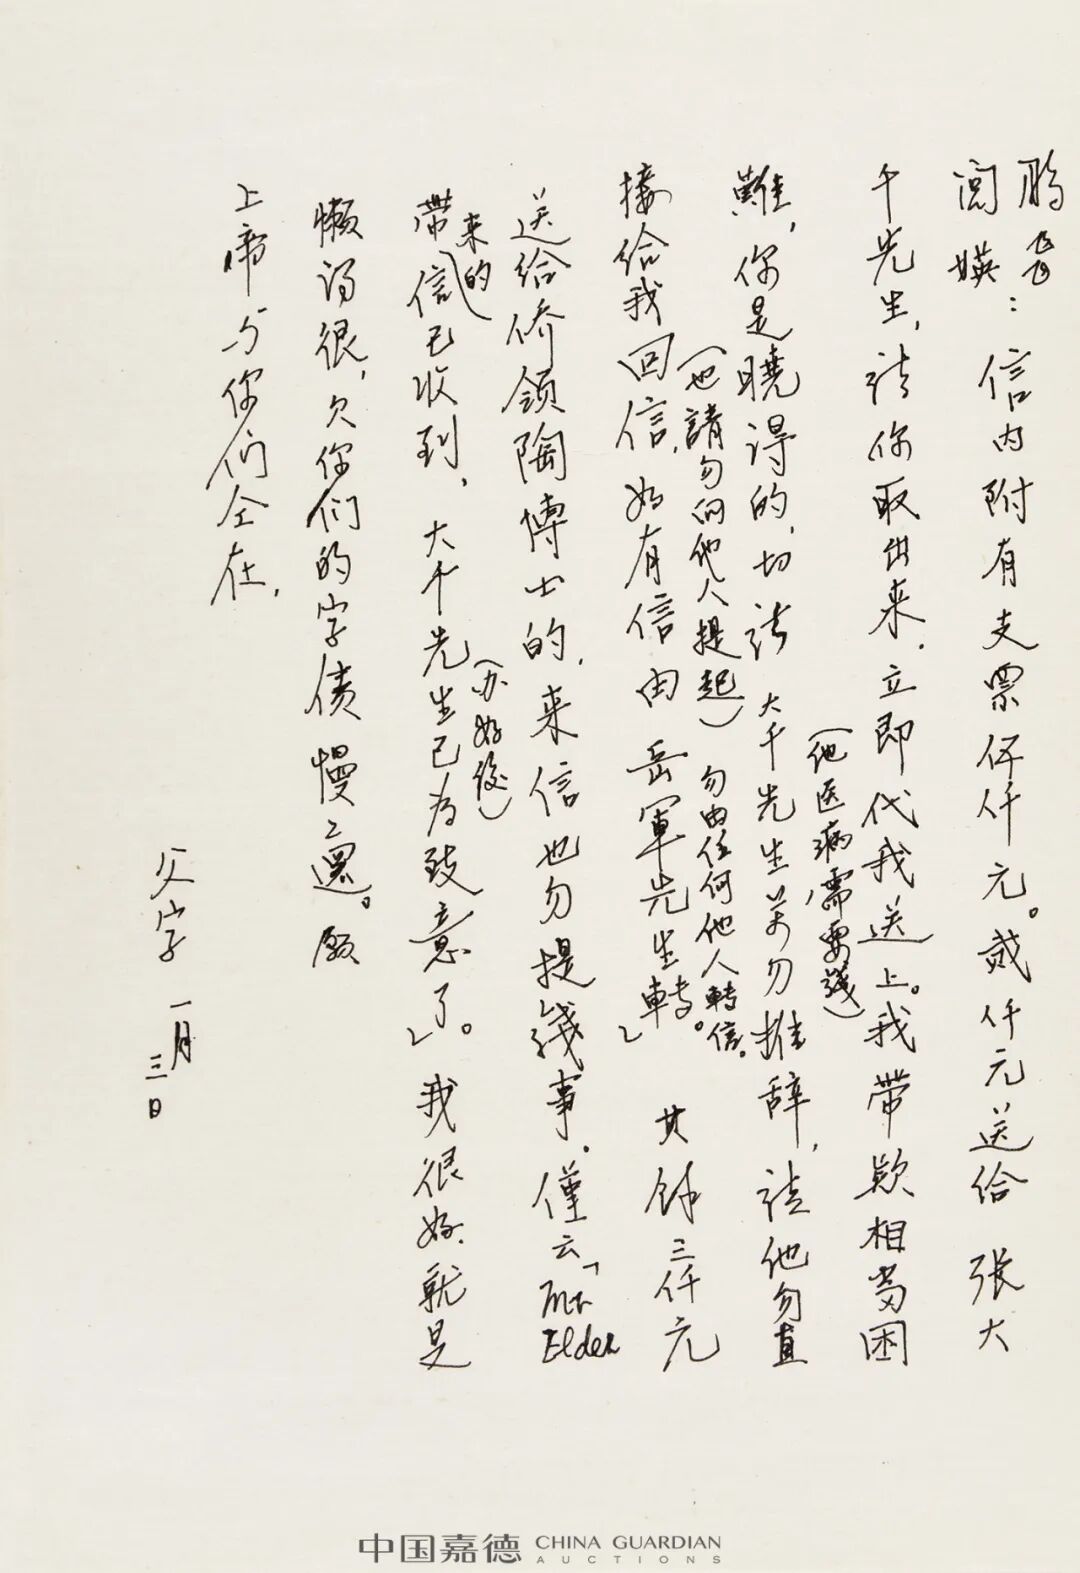 鵬飛
閭媖：信内附有支票伍仟元。贰仟元送给 张大
千先生，请你取出来，立即代我送上。我带欵相当困
（他医病需要錢）
難，你是曉得的，切请 大千先生萬勿推辞，请他勿直
（也請勿向他人提起）勿由任何他人轉信。
接给我回信，如有信由 岳軍先生轉。 其餘三仟元
送给侨领陶博士的，来信也勿提錢事。僅云「Mr Elder
来的
带信已收到，大千先生已为致意了。」我很好，就是
（办好後）
懒得很，欠你们的字债慢慢還。願
上帝与你们仝在，
父字 一月
三日
中国嘉德 CHINA GUARDIAN
AUCTIONS